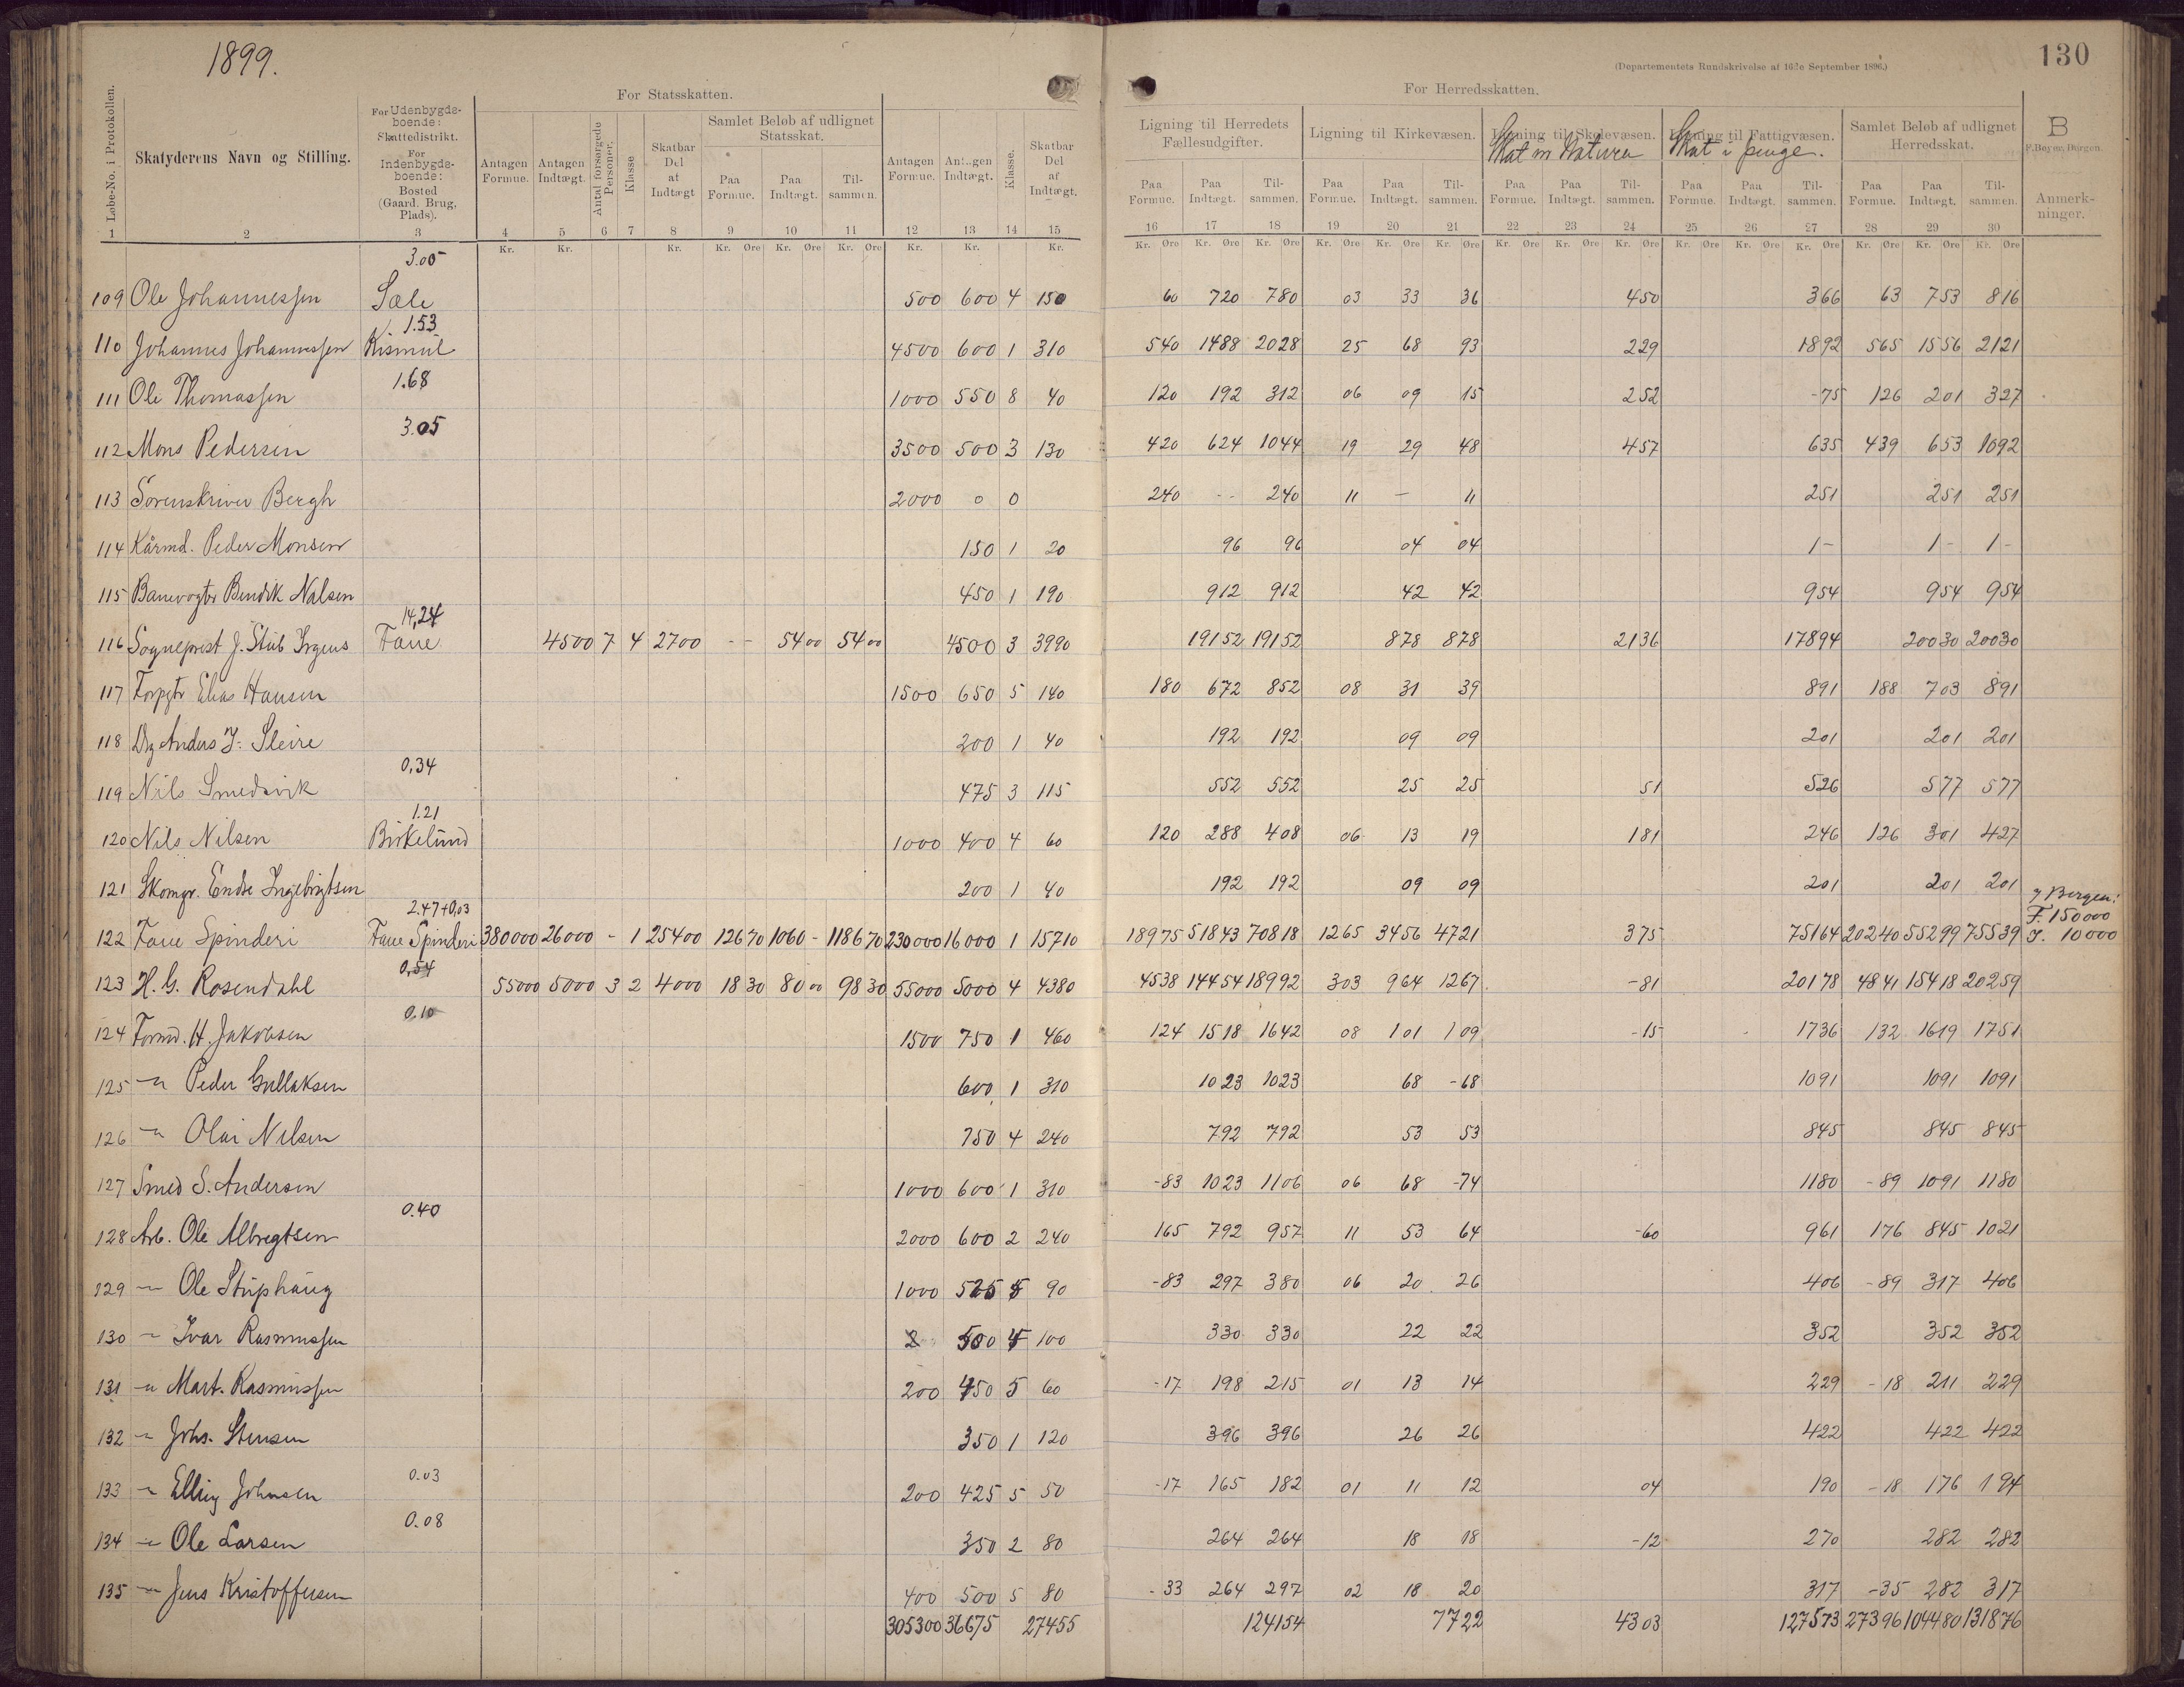 1899.
130
(Departementets Rundskrivelse af 16de September 1896.)
For Statsskatten.
For Herredsskatten.
Løbe-No. i Protokollen.
Skatyderens Navn og Stilling.
For Udenbygdsboende: Skattedistrikt. For Indenbygdsboende: Bosted (Gaard, Brug, Plads).
Antagen Formue.
Antagen Indtægt.
Antal forsørgede Personer.
Klasse
Skatbar Del at Indtægt
Samlet Beløb af udlignet Statsskat.
Paa Formue. Paa Indtægt. Tilsammen.
Antagen Formue.
Antagen Indtægt.
Klasse.
Skatbar Del af Indtægt.
Ligning til Herredets Fællesudgifter.
Paa Formue. Paa Indtægt. Tilsammen.
Ligning til Kirkevæsen.
Paa Formue. Paa Indtægt. Tilsammen.
Ligning til Skolevæsen.
Skat in Natura
Paa Formue. Paa Indtægt. Tilsammen.
Ligning til Fattigvæsen.
Skat i penge.
Paa Formue. Paa Indtægt. Tilsammen.
Samlet Beløb af udlignet Herredsskat.
Paa Formue. Paa Indtægt. Tilsammen.
B
F. Beyer, Bergen.
Anmerkninger.
1 2 3 4 5 6 7 8 9 10 11 12 13 14 15 16 17 18 19 20 21 22 23 24 25 26 27 28 29 30
Kr. Kr. Kr. Kr. Øre Kr. Øre Kr. Øre Kr. Kr. Kr. Kr. Øre Kr. Øre Kr. Øre Kr. Øre Kr. Øre Kr. Øre Kr. Øre Kr. Øre Kr. Øre Kr. Øre Kr. Øre Kr. Øre Kr. Øre Kr. Øre Kr. Øre
3.05
109 Ole Johannessen Sæle 500 600 4 150 60 720 780 03 33 36 450 366 63 753 816
1.53
110 Johannes Johannessen Kismul 4500 600 1 310 540 1488 2028 25 68 93 229 1892 565 1556 2121
1.68
111 Ole Thomassen 1000 550 8 40 120 192 312 06 09 15 252 -75 126 201 327
3.05
112 Mons Pedersen 3500 500 3 130 420 624 1044 19 29 48 457 635 439 653 1092
113 Sorenskriver Bergh 2000 0 0 240 -- 240 11 - 11 251 251 251
114 Kårmd. Peder Monsen 150 1 20 96 96 04 04 1- 1- 1-
115 Banevogter Bendik Nalsen 450 1 190 912 912 42 42 954 954 954
14,24
116 Sogneprest J. Stub Irgens Fane 4500 7 4 2700 -- 54 00 54 00 4500 3 3990 19152 19152 878 878 2136 17894 20030 20030
117 Forpgtr Elias Hansen 1500 650 5 140 180 672 852 08 31 39 891 188 703 891
118 Drg Anders J. Sleire 200 1 40 192 192 09 09 201 201 201
0,34
119 Nils Smedsvik 475 3 115 552 552 25 25 51 526 577 577
1.21
120 Nils Nilsen Birkelund 1000 400 4 60 120 288 408 06 13 19 181 246 126 301 427
121 Skomgr. Endre Ingebrigtsen 200 1 40 192 192 09 09 201 201 201
2.47+0,03
I Bergen:
F. 150000
122 Fane Spinderi Fane Spinderi 380000 26000 - 1 25400 126 70 1060 - 1186 70 230000 16000 1 15710 18975 51843 70818 1265 3456 4721 375 75164 20240 55299 75539 I. 10000
0,54
123 H. G. Rosendahl 55000 5000 3 2 4000 18 30 80 00 98 30 55000 5000 4 4380 4538 14454 18992 303 964 1267 -81 20178 4841 15418 20259
0,10
124 Formd. H. Jakobsen 1500 750 1 460 124 1518 1642 08 101 109 -15 1736 132 1619 1751
125 -"- Peder Gullaksen 600 1 310 1023 1023 68 -68 1091 1091 1091
126 -"- Olai Nilsen 750 4 240 792 792 53 53 845 845 845
127 Smed S. Andersen 1000 600 1 310 -83 1023 1106 06 68 -74 1180 -89 1091 1180
0.40
128 Arb. Ole Albregtsen 2000 600 2 240 165 792 957 11 53 64 -60 961 176 845 1021
129 -"- Ole Stuphaug 1000 525 5 90 -83 297 380 06 20 26 406 -89 317 406
130 -"- Ivar Rasmussen 500 4 100 330 330 22 22 352 352 352
131 -"- Mart. Rasmussen 200 450 5 60 -17 198 215 01 13 14 229 -18 211 229
132 -"- Johs. Stensen 350 1 120 396 396 26 26 422 422 422
0.03
133 -"- Elling Johnsen 200 425 5 50 -17 165 182 01 11 12 04 190 -18 176 194
0.08
134 -"- Ole Larsen 350 2 80 264 264 18 18 -12 270 282 282
135 -"- Jens Kristoffersen 400 500 5 80 -33 264 297 02 18 20 317 -35 282 317
305300 36675 27455 124154 7722 4303 127573 27396 104480 131876